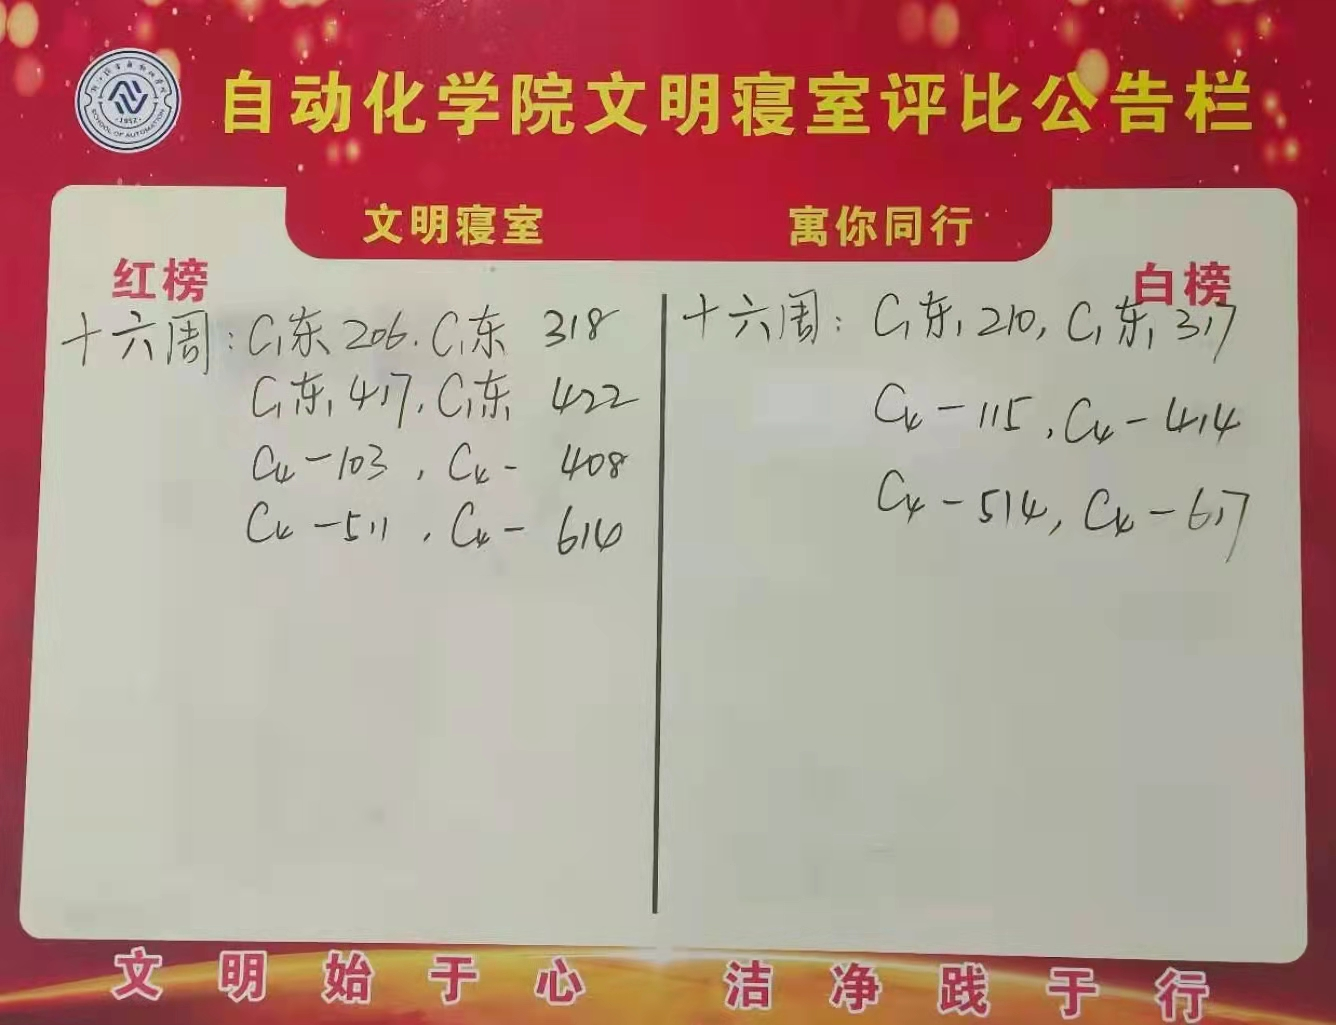 自动化学院文明寝室评比公告栏
SCHOOL OF AUTOMATION
·1952·
文明寝室 寓你同行
红榜
十六周：C1东206．C1东 318
C1东417，C1东 422
C4-103，C4- 408
C4-511，C4- 614
白榜
十六周：C1东210，C1东317
C4-115，C4-414
C4-514，C4-617
文明始于心 洁净践于行